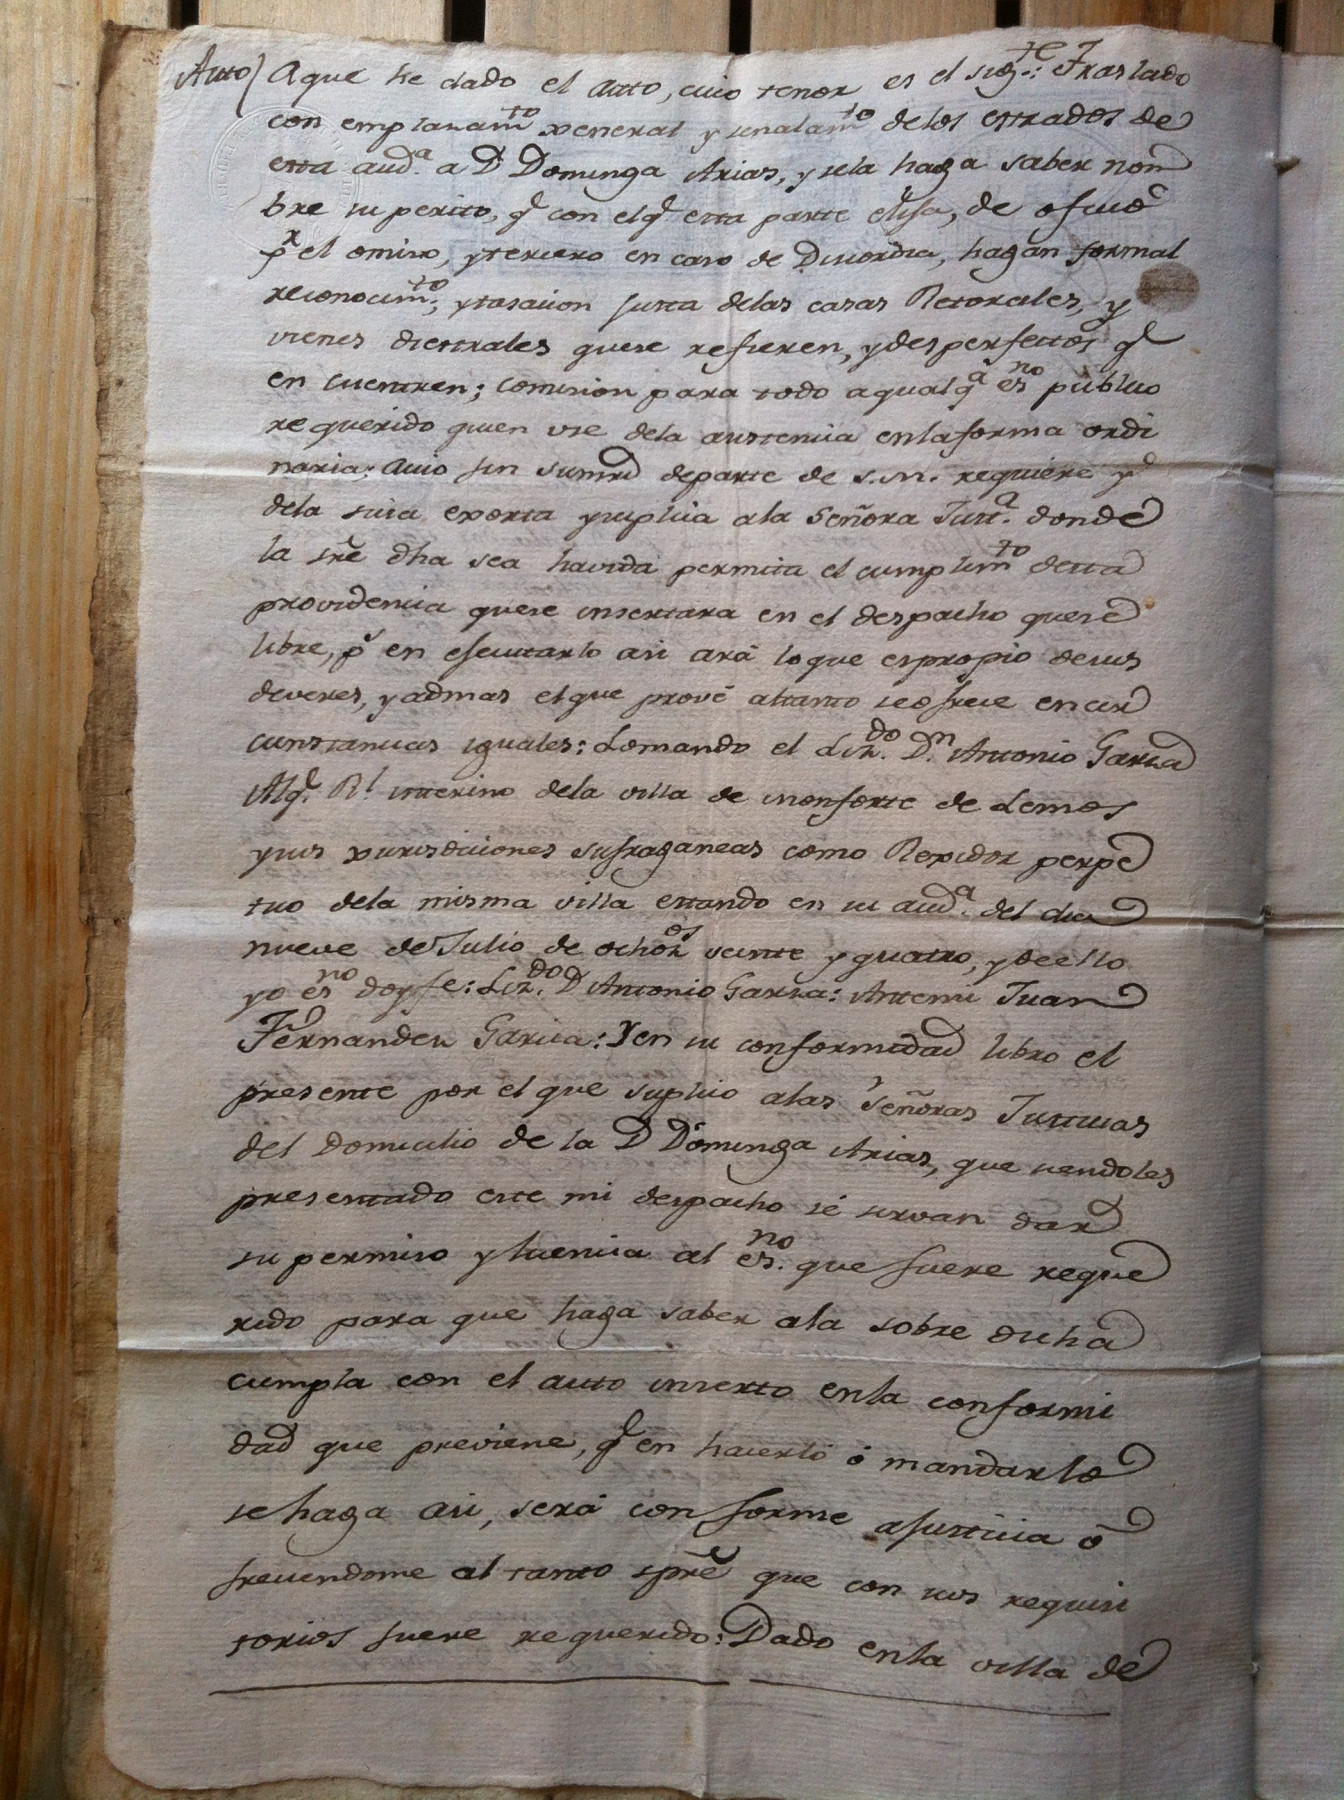 Auto) A que he dado el auto, cuio tenor es el sigte: Traslado
con emplazamto xeneral y señalamto delos estrados de
esta auda. a Da Dominga Arias, y sela haga saber nom
bre su perito, q con elq esta parte elija, de oficio
pr el omiso, y tercero en caso de Discordia, hagan formal
reconocimto; y tasacion justa delas casas Retorales, y
vienes diestrales quese refieren, y desperfectos q
en cuentren; comision para todo a qualqa esno publico
re querido quien vse dela asistencia enla forma ordi
naria: Acuio fin sumrd departe de S.M. requiere y
dela suia exorta y suplica ala Señora Justa. donde
la sre dha sea havida permita el cumplimto desta
providencia quese insertara en el despacho quese
libre, ps en esecutarlo asi ará loque espropio desus
deveres, y admas elque prové altanto seofrece en cir
cunstancias iguales: Lomando el Lizdo. Dn. Antonio Garza
Alqe. Rl. interino dela villa de monforte de Lemos
y sus xurisdiciones sufraganeas como Rexidor perpe
tuo dela misma villa estando en su auda. del dia
nueve de Julio de ochozos veinte y quatro, y de ello
yo esno doy fe: Lizdo. D Antonio Garza: Antemi Juan
Fernandez Garcia: Y en su conformidad libro el
presente por el que suplico alas Señoras Justicias
del Domicilio de la D Dominga Arias, que siendoles
presentado este mi despacho sé sirvan dar
su permiso y licencia al esno. que fuere reque
rido para que haga saber ala sobre dicha
cumpla con el auto inserto enla conformi
dad que previene, q en hacerlo ó mandarlo
se haga asi, será con forme ajusticia ó
freciendome al tanto spre que con sus requisi
torios fuere re querido: Dado enla villa de